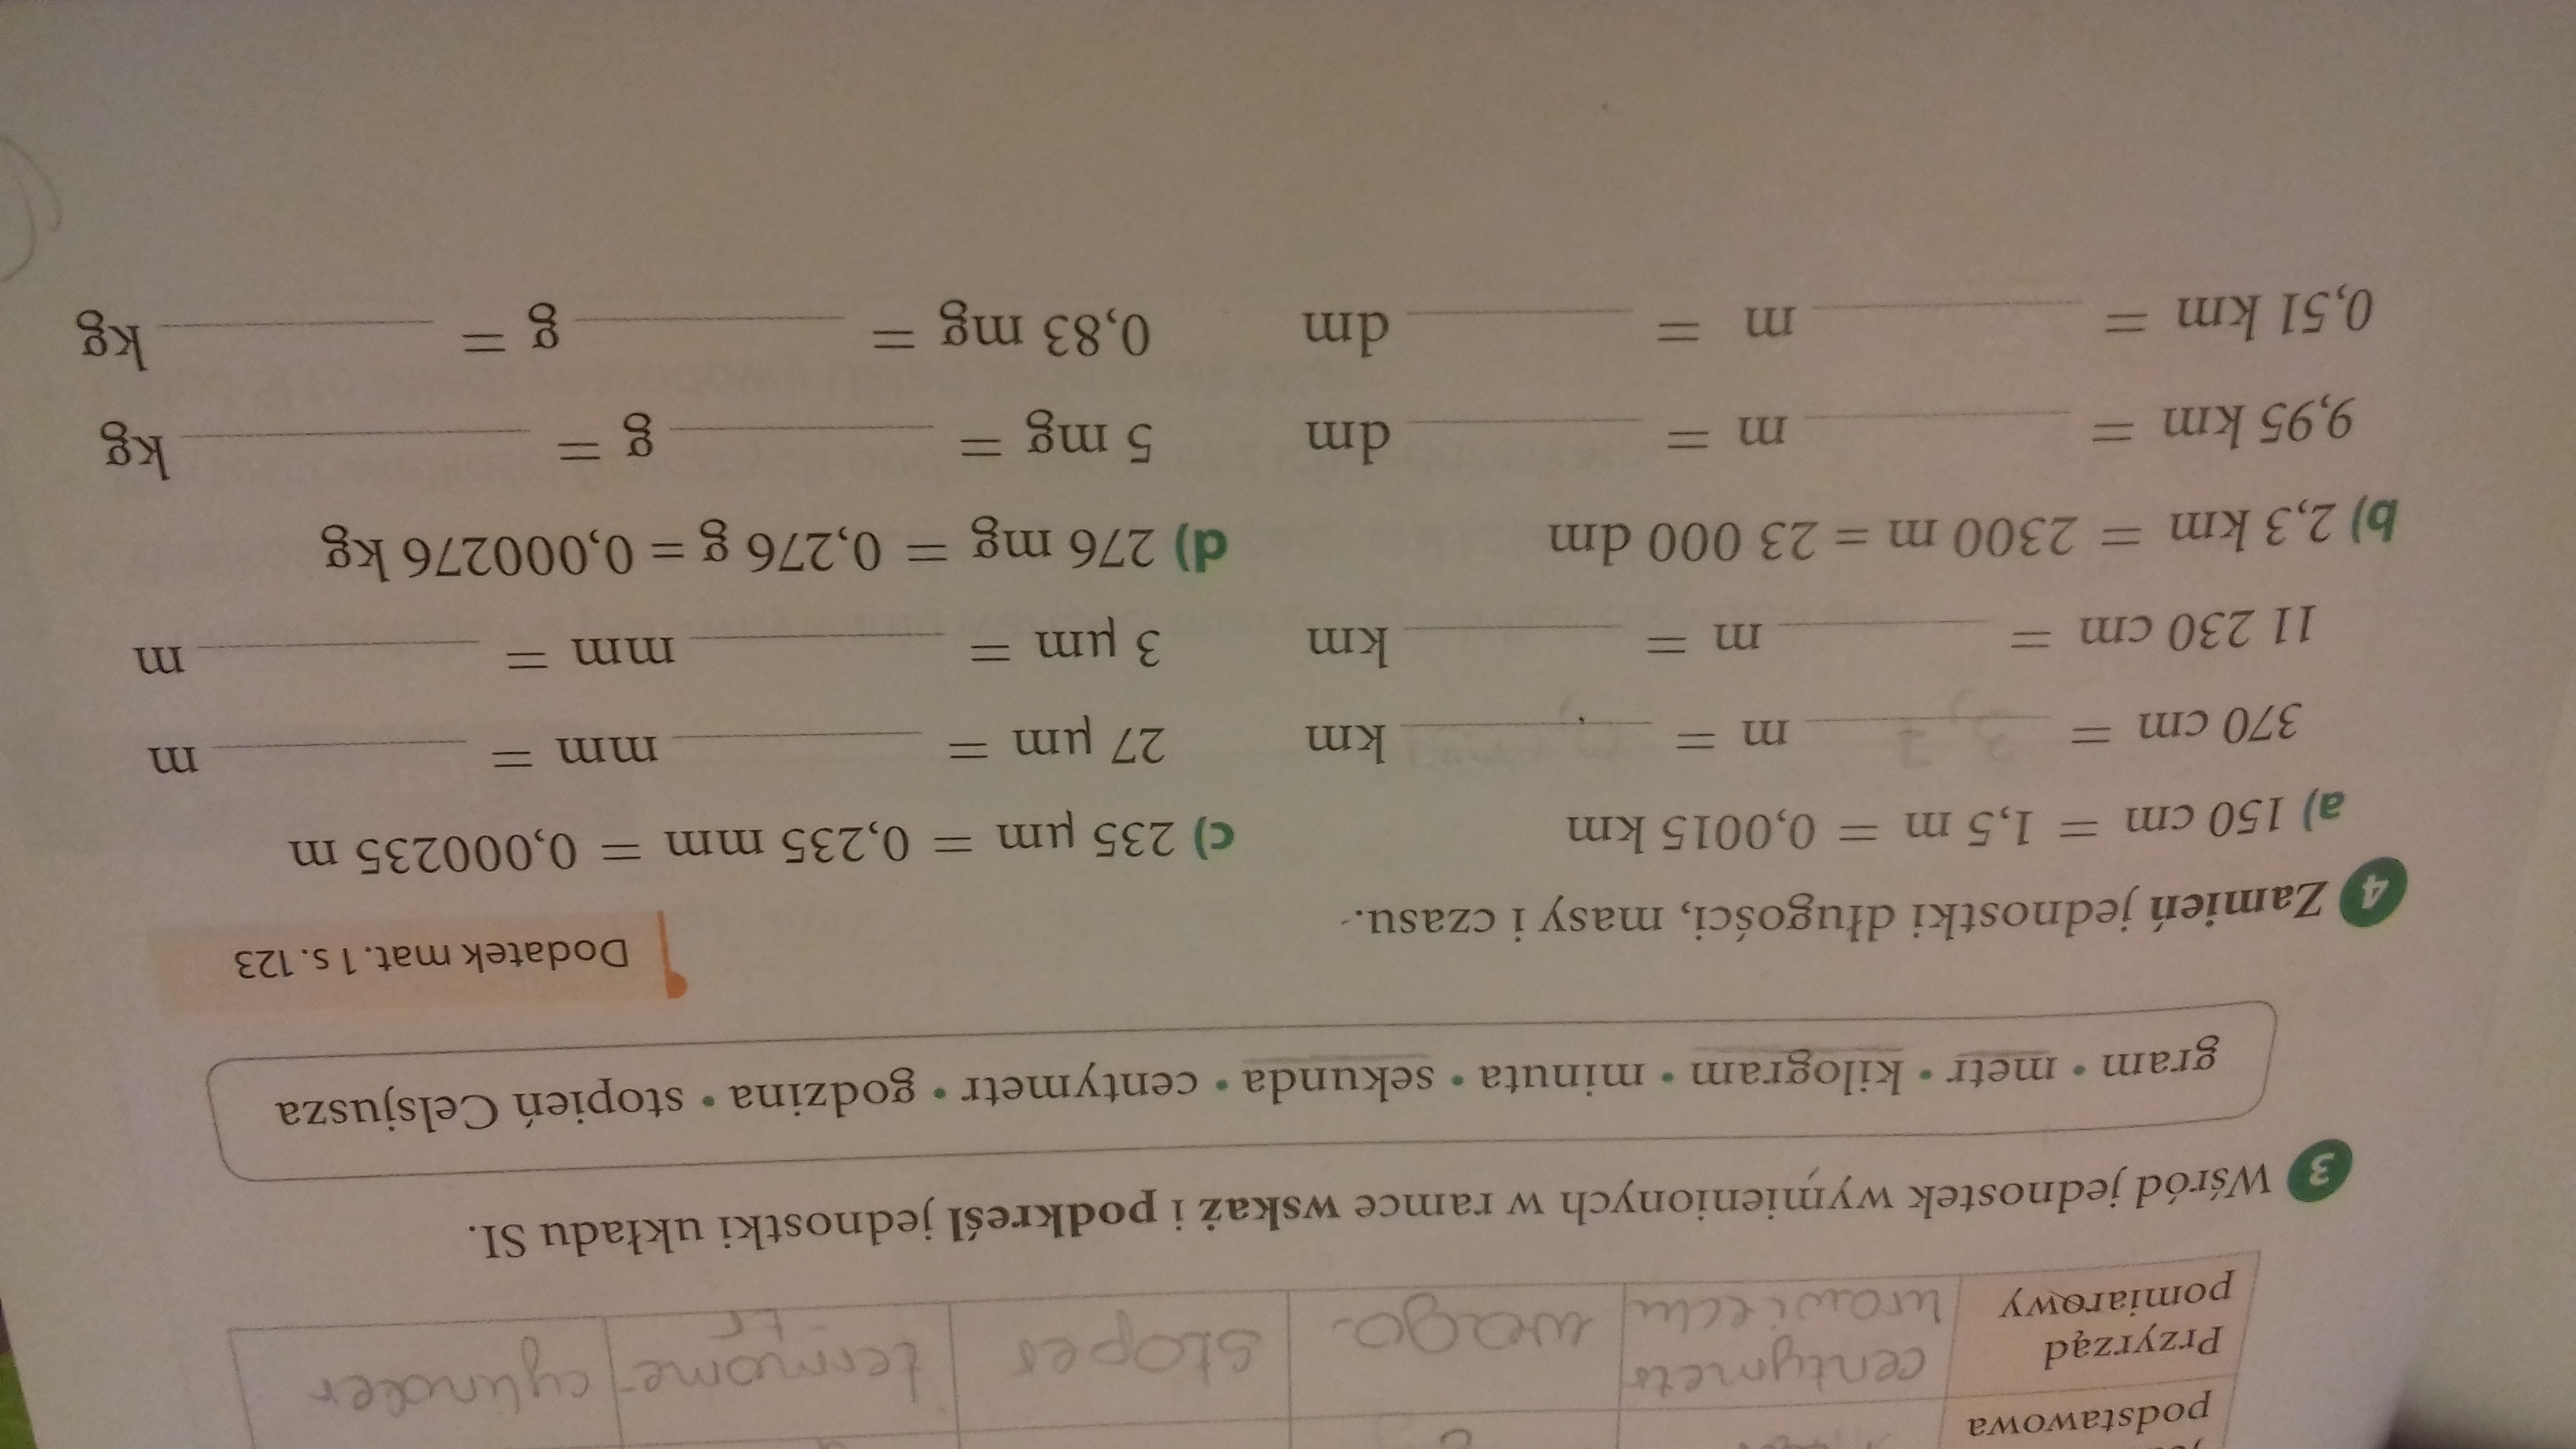 podstawowa
Przyrząd pomiarowy centymetr krawiecki waga stoper termometr cylinder
3 Wśród jednostek wymienionych w ramce wskaż i podkreśl jednostki układu SI.
gram • metr • kilogram • minuta • sekunda • centymetr • godzina • stopień Celsjusza
Dodatek mat. 1 s. 123
4 Zamień jednostki długości, masy i czasu.
a) 150 cm = 1,5 m = 0,0015 km
370 cm = 3,7 m = km
11 230 cm = m = km
b) 2,3 km = 2300 m = 23 000 dm
9,95 km = m = dm
0,51 km = m = dm
c) 235 µm = 0,235 mm = 0,000235 m
27 µm = mm = m
3 µm = mm = m
d) 276 mg = 0,276 g = 0,000276 kg
5 mg = g = kg
0,83 mg = g = kg